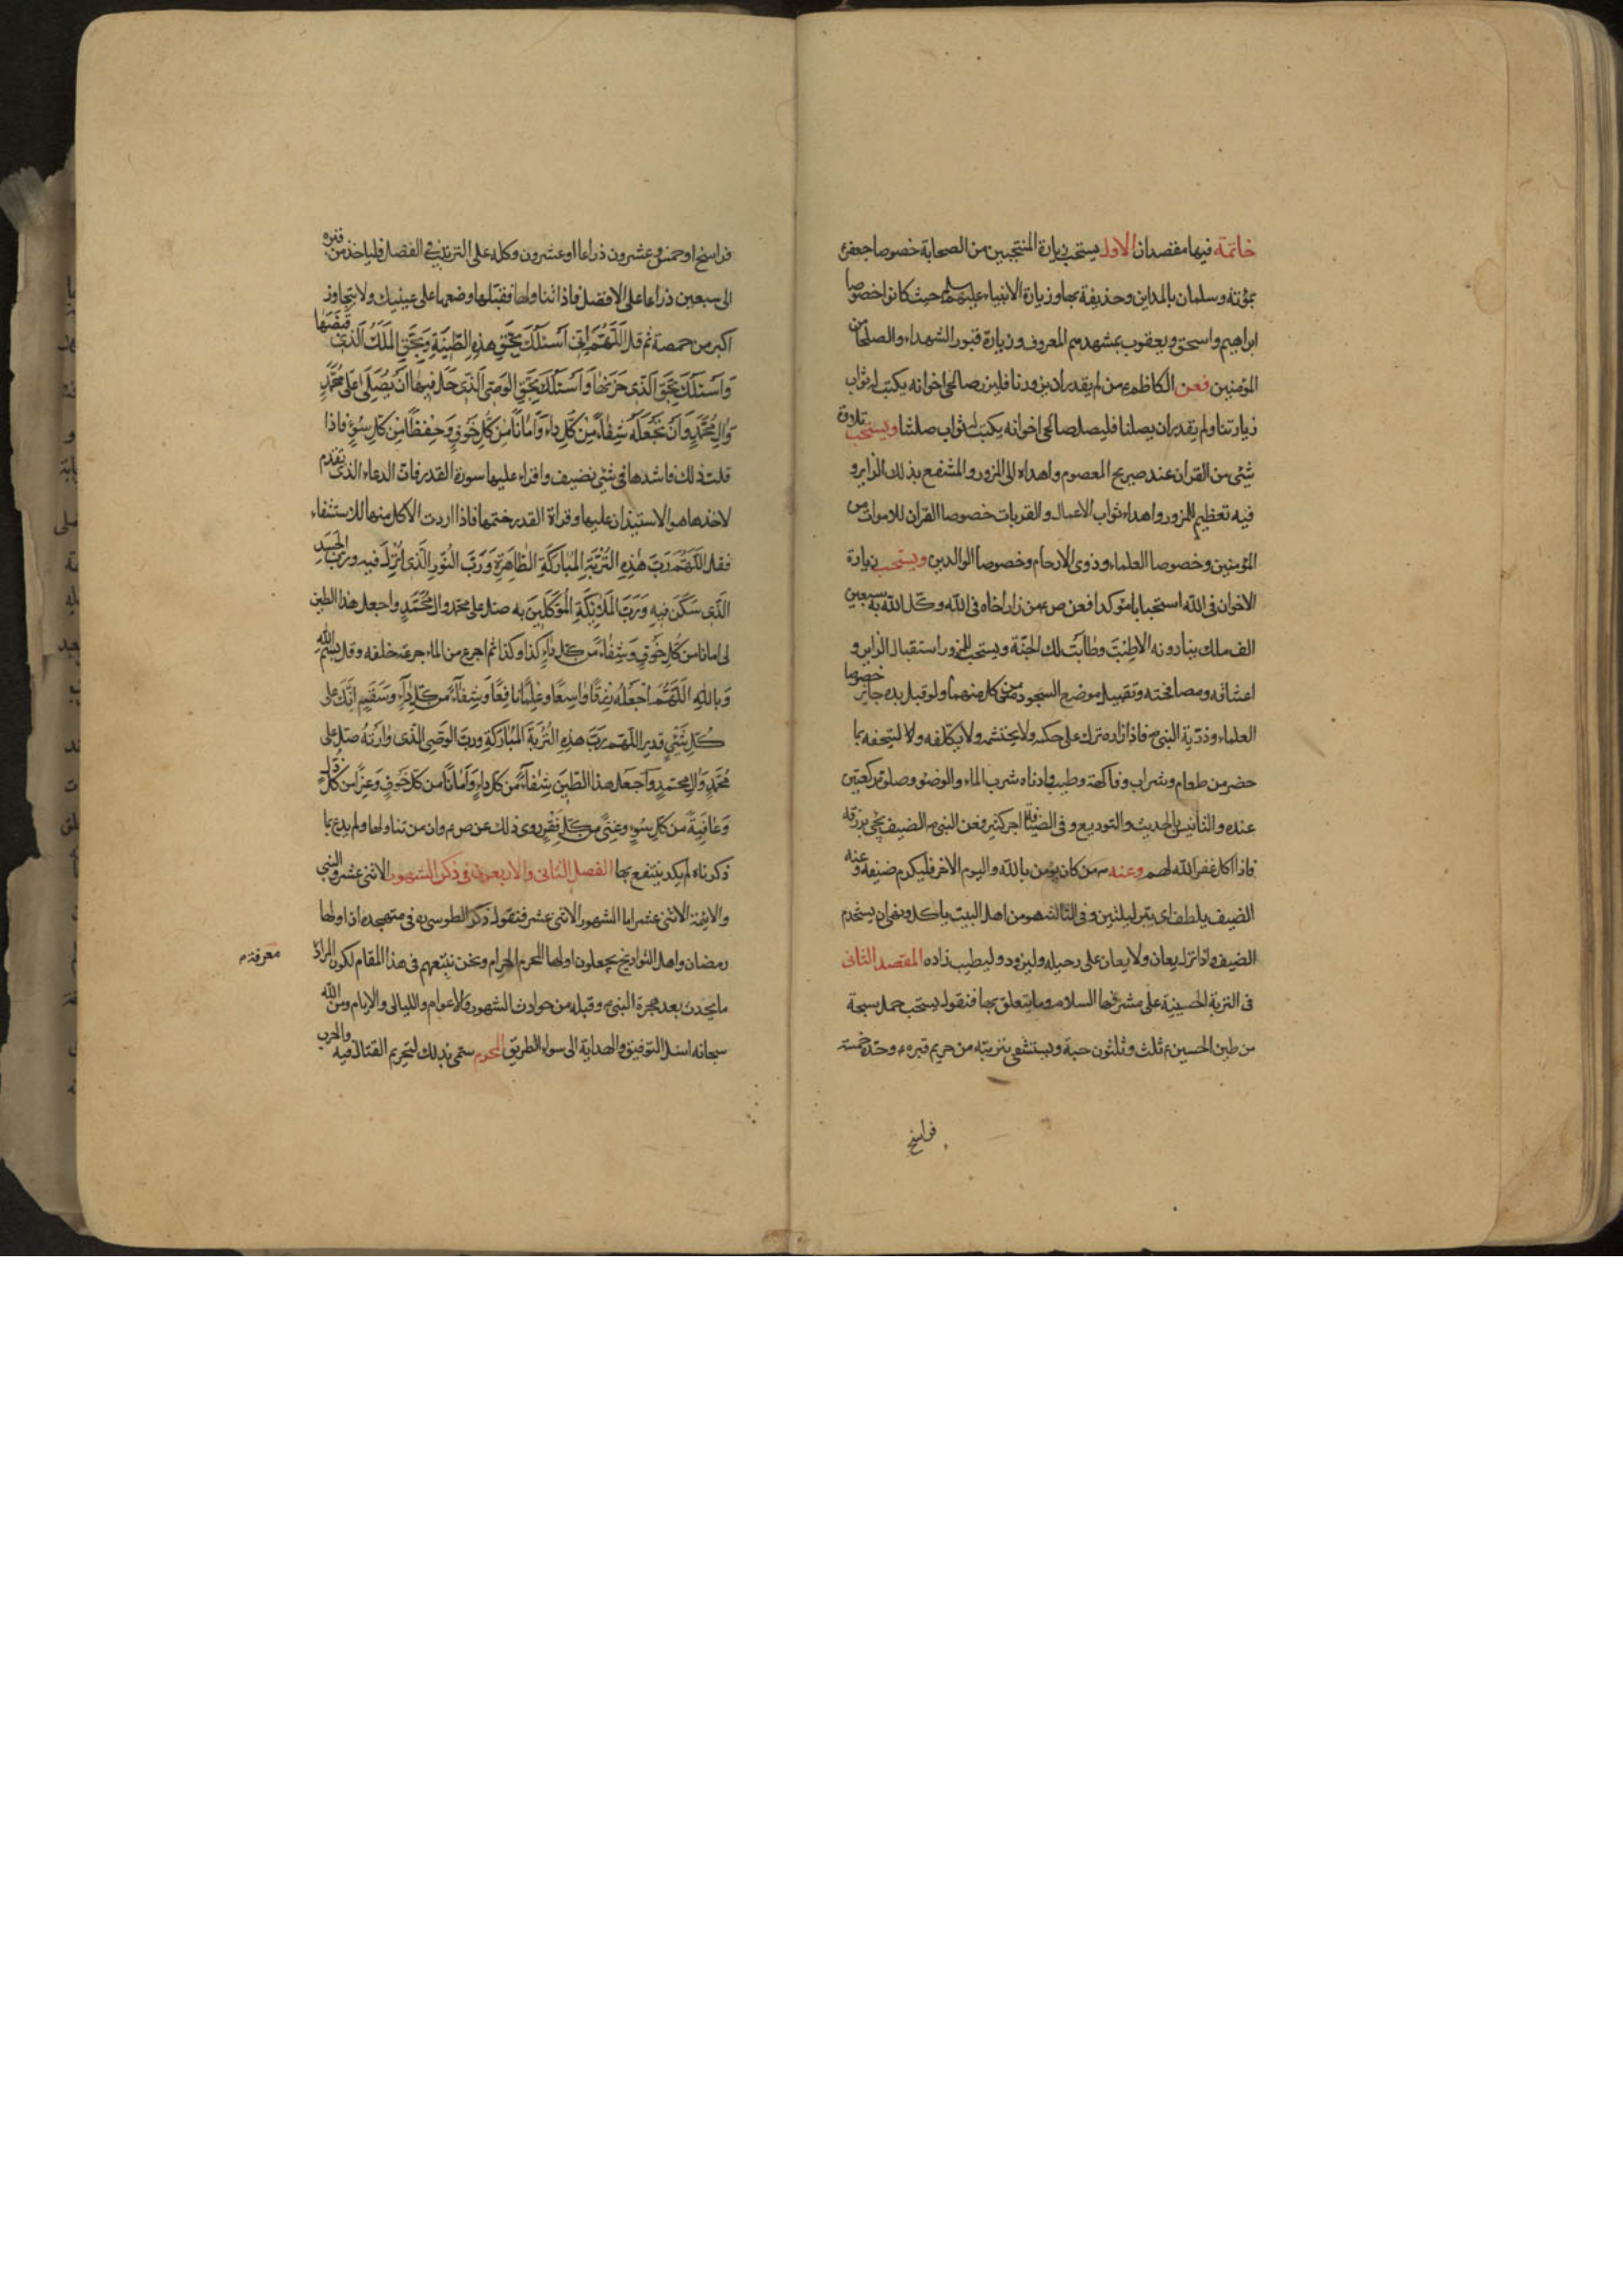 خاتمة فيها مقصدان الاول يستحب زيارة المنتجبين من الصحابة خصوصا جعفر ع
بمؤته وسلمان بالمداين وحذيفة بها وزيارة الانبياء عليهم سلم حيث كانوا خصوصا
ابراهيم واسحق ويعقوب بمشهدهم المعروف وزيارة قبور الشهداء والصلحا من
المؤمنين فعن الكاظم ع من لم يقدر ان يزورنا فليزر صالحى اخوانه يكتب له ثواب
زيارتنا ولم يقدر ان يصلنا فليصل صالحى اخوانه يكتب له ثواب صلتنا ويستحب تلاوة
شئ من القران عند ضريح المعصوم واهداه الى المزور والمنتفع بذلك الزاير و
فيه تعظيم للمزور واهداء ثواب الاعمال والقربات خصوصا القران للاموات من
المؤمنين وخصوصا العلماء وذوى الارحام وخصوصا الوالدين ويستحب زيارة
الاخوان فى الله استحبابا مؤكدا فعن ص ع من زار اخاه فى الله وكل الله به سبعين
الف ملك ينادونه الا طبت وطابت لك الجنة ويستحب للمزور استقبال الزاير و
اعتناقه ومصافحته وتقبيل موضع السجود من كل منهما ولو قبل يده جاز خصوصا
العلماء وذرية النبى ص فاذا زاره ترك على حكمه ولا يحتشم ولا يكلفه ولا ليتحفه بما
حضر من طعام وشراب وفاكهة وطيب وادناه شرب الماء والوضوء وصلوة ركعتين
عنده والتانيس بالحديث والتوديع وفى الضيافة اجر كثير فعن النبى ص الضيف يجئ برزقه
فاذا اكل غفر الله لهم وعنه ص من كان يؤمن بالله واليوم الاخر فليكرم ضيفه وعنه
الضيف يلطف اى يبر ليلتين وفى الثالثة هو من اهل البيت ياكل ونهى ان يستخدم
الضيف واذا نزل يعان ولا يعان على رحيله وليزود وليطيب زاده المقصد الثانى
فى التربة الحسينية على مشرفها السلام وما يتعلق بها فنقول يستحب حمل سبحة
من طين الحسين ع ثلث وثلثون حبة ويستشفى بتربته من حريم قبره ع وحده خمسة
فراسخ
فراسخ او خمس وعشرون ذراعا او عشرون وكله على الترتيب فى الفضل فلياخذ من قبره
الى سبعين ذراعا على الافضل فاذا تناولها فقبلها وضعها على عينيك ولا يتجاوز
اكبر من حمصة ثم قل اللهم انى اسئلك بحق هذه الطينة وبحق الملك الذى قبضها
واسئلك بحق الذى خزنها واسئلك بحق الوصى الذى حل فيها ان يصلى على محمد
وال محمد وان تجعله شفاء من كل داء وامانا من كل خوف وحفظا من كل سوء فاذا
قلت ذلك فاشدها فى شئ نضيف واقراء عليها سورة القدر فان الدعاء الذى تقدم
لاخذها هو الاستيذان عليها وقراة القدر ختمها فاذا اردت الاكل منها للاستشفاء
فقل اللهم رب هذه التربة المباركة الطاهرة ورب النور الذى انزل فيه ورب الجسد
الذى سكن فيه ورب الملائكة الموكلين به صل على محمد وال محمد واجعل هذا الطين
لى امانا من كل خوف وشفاء من كل داء كذا وكذا ثم اجرع من الماء جرعة خلفه وقل بسم الله
وبالله اللهم اجعله رزقا واسعا وعلما نافعا وشفاء من كل داء وسقم انك على
كل شئ قدير اللهم رب هذه التربة المباركة ورب الوصى الذى وارته صل على
محمد وال محمد واجعل هذا الطين شفاء من كل داء وامانا من كل خوف وعزا من كل ذل
وعافية من كل سوء وغنى من كل فقر روى ذلك عن ص ع وان من تناولها ولم يدع بما
ذكرناه لم يكد ينتفع بها الفصل الثانى والاربعون فى ذكر الشهور الاثنى عشر والنبى
والايمة الاثنى عشر اما الشهور الاثنى عشر فنقول ذكر الطوسى ره فى متهجده ان اولها
رمضان واهل التواريخ يجعلون اولها المحرم الحرام ونحن نتبعهم فى هذا المقام لكون المراد
معرفة
ما يحدث بعد هجرة النبى ص وقبله من حوادث الشهور والاعوام والليالى والايام ومن الله
سبحانه اسئل التوفيق والهداية الى سواء الطريق المحرم سمى بذلك لتحريم القتال فيه والحرب